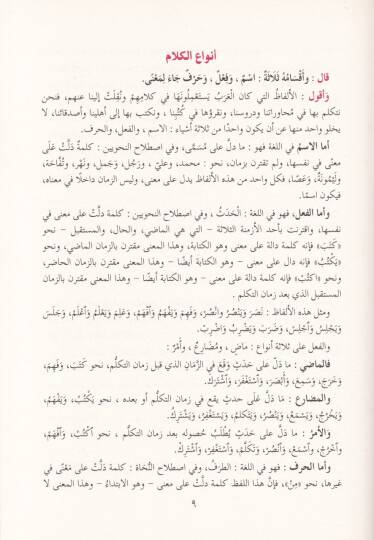 أنواع الكلام
قال : وَأَقْسَامُهُ ثَلَاثَةٌ : اسْمٌ ، وَفِعْلٌ ، وَحَرْفٌ جَاءَ لِمَعْنًى.
وأقول : الألفاظُ التي كان الْعَرَبُ يَسْتَعْمِلُونَهَا في كلامِهِمْ ونُقِلَتْ إلينا عنهم، فنحن
نتكلم بها في مُحاوراتنا ودروسنا، ونقرؤها في كُتُبِنا ، ونكتب بها إلى أهلينا وأصدقائنا، لا
يخلو واحد منها عن أن يكون واحدًا من ثلاثة أشياء : الاسم ، والفعل، والحرف.
أما الاسمُ في اللغة فهو : ما دلَّ على مُسَمًّى، وفي اصطلاح النحويين : كلمةٌ دَلَّتْ عَلَى
معنًى في نفسها، ولم تقترن بزمان، نحو : محمد، وعليّ ، ورَجُل، وجَمَل، ونَهْر، وتُفَّاحَة،
ولَيْمُونَةٌ، وعَصًا، فكل واحد من هذه الألفاظ يدل على معنى، وليس الزمان داخلًا في معناه،
فيكون اسمًا.
وأما الفعل، فهو في اللغة : الْحَدَثُ ، وفي اصطلاح النحويين : كلمة دلَّتْ على معنى في
نفسها، واقترنت بأحد الأزمنة الثلاثة – التي هي الماضي، والحال، والمستقبل – نحو
«كَتَبَ» فإنه كلمة دالة على معنى وهو الكتابة، وهذا المعنى مقترن بالزمان الماضي، ونحو
«يَكْتُبُ» فإنه دال على معنى – وهو الكتابة أيضًا – وهذا المعنى مقترن بالزمان الحاضر،
ونحو «اكتُبْ» فإنه كلمة دالة على معنى – وهو الكتابة أيضًا – وهذا المعنى مقترن بالزمان
المستقبل الذي بعد زمان التكلم .
ومثل هذه الألفاظ : نَصَرَ وَيَنْصُرُ وانْصُرْ، وَفَهِمَ وَيَفْهَمُ وَافْهَمْ، وَعَلِمَ وَيَعْلَمُ وَاعْلَمْ، وَجَلَسَ
وَيَجْلِسُ وَاجْلِسْ، وَضَرَبَ وَيَضْرِبُ وَاضْرِبْ.
والفعل على ثلاثة أنواع : ماضٍ ، ومُضَارِعٌ ، وأَمْرٌ :
فالماضي : ما دَلَّ على حَدَثٍ وَقَعَ في الزَّمَانِ الذي قبل زمان التكلُّم، نحو كَتَبَ، وَفَهِمَ،
وَخَرَجَ، وَسَمِعَ، وَأَبْصَرَ، وَاسْتَغْفَرَ، وَاشْتَرَكَ.
والمضارع : مَا دَلَّ عَلى حدثٍ يقع في زمان التكلُّم أو بعده ، نحو يَكْتُبُ، وَيَفْهَمُ،
وَيَخْرُجُ، وَيَسْمَعُ، وَيَنْصُرُ، وَيَتَكَلَّمُ، وَيَسْتَغْفِرُ، وَيَشْتَرِكُ.
والأمرُ : ما دَلَّ على حَدَثٍ يُطْلَبُ حُصوله بعد زمان التكلُّم ، نحو اكْتُبْ، وَافْهَمْ،
وَاخْرُجْ، وَاسْمَعْ، وَانْصُرْ، وَتَكَلَّمْ، وَاسْتَغْفِرْ، وَاشْتَرِكْ.
وأما الحرف : فهو في اللغة : الطرَفُ، وفي اصطلاح النُّحَاة : كلمة دَلَّتْ عَلَى مَعْنًى في
غيرها، نحو «مِنْ»، فإنَّ هذا اللفظ كلمة دلَّتْ على معنى – وهو الابتداءُ – وهذا المعنى لا
٩